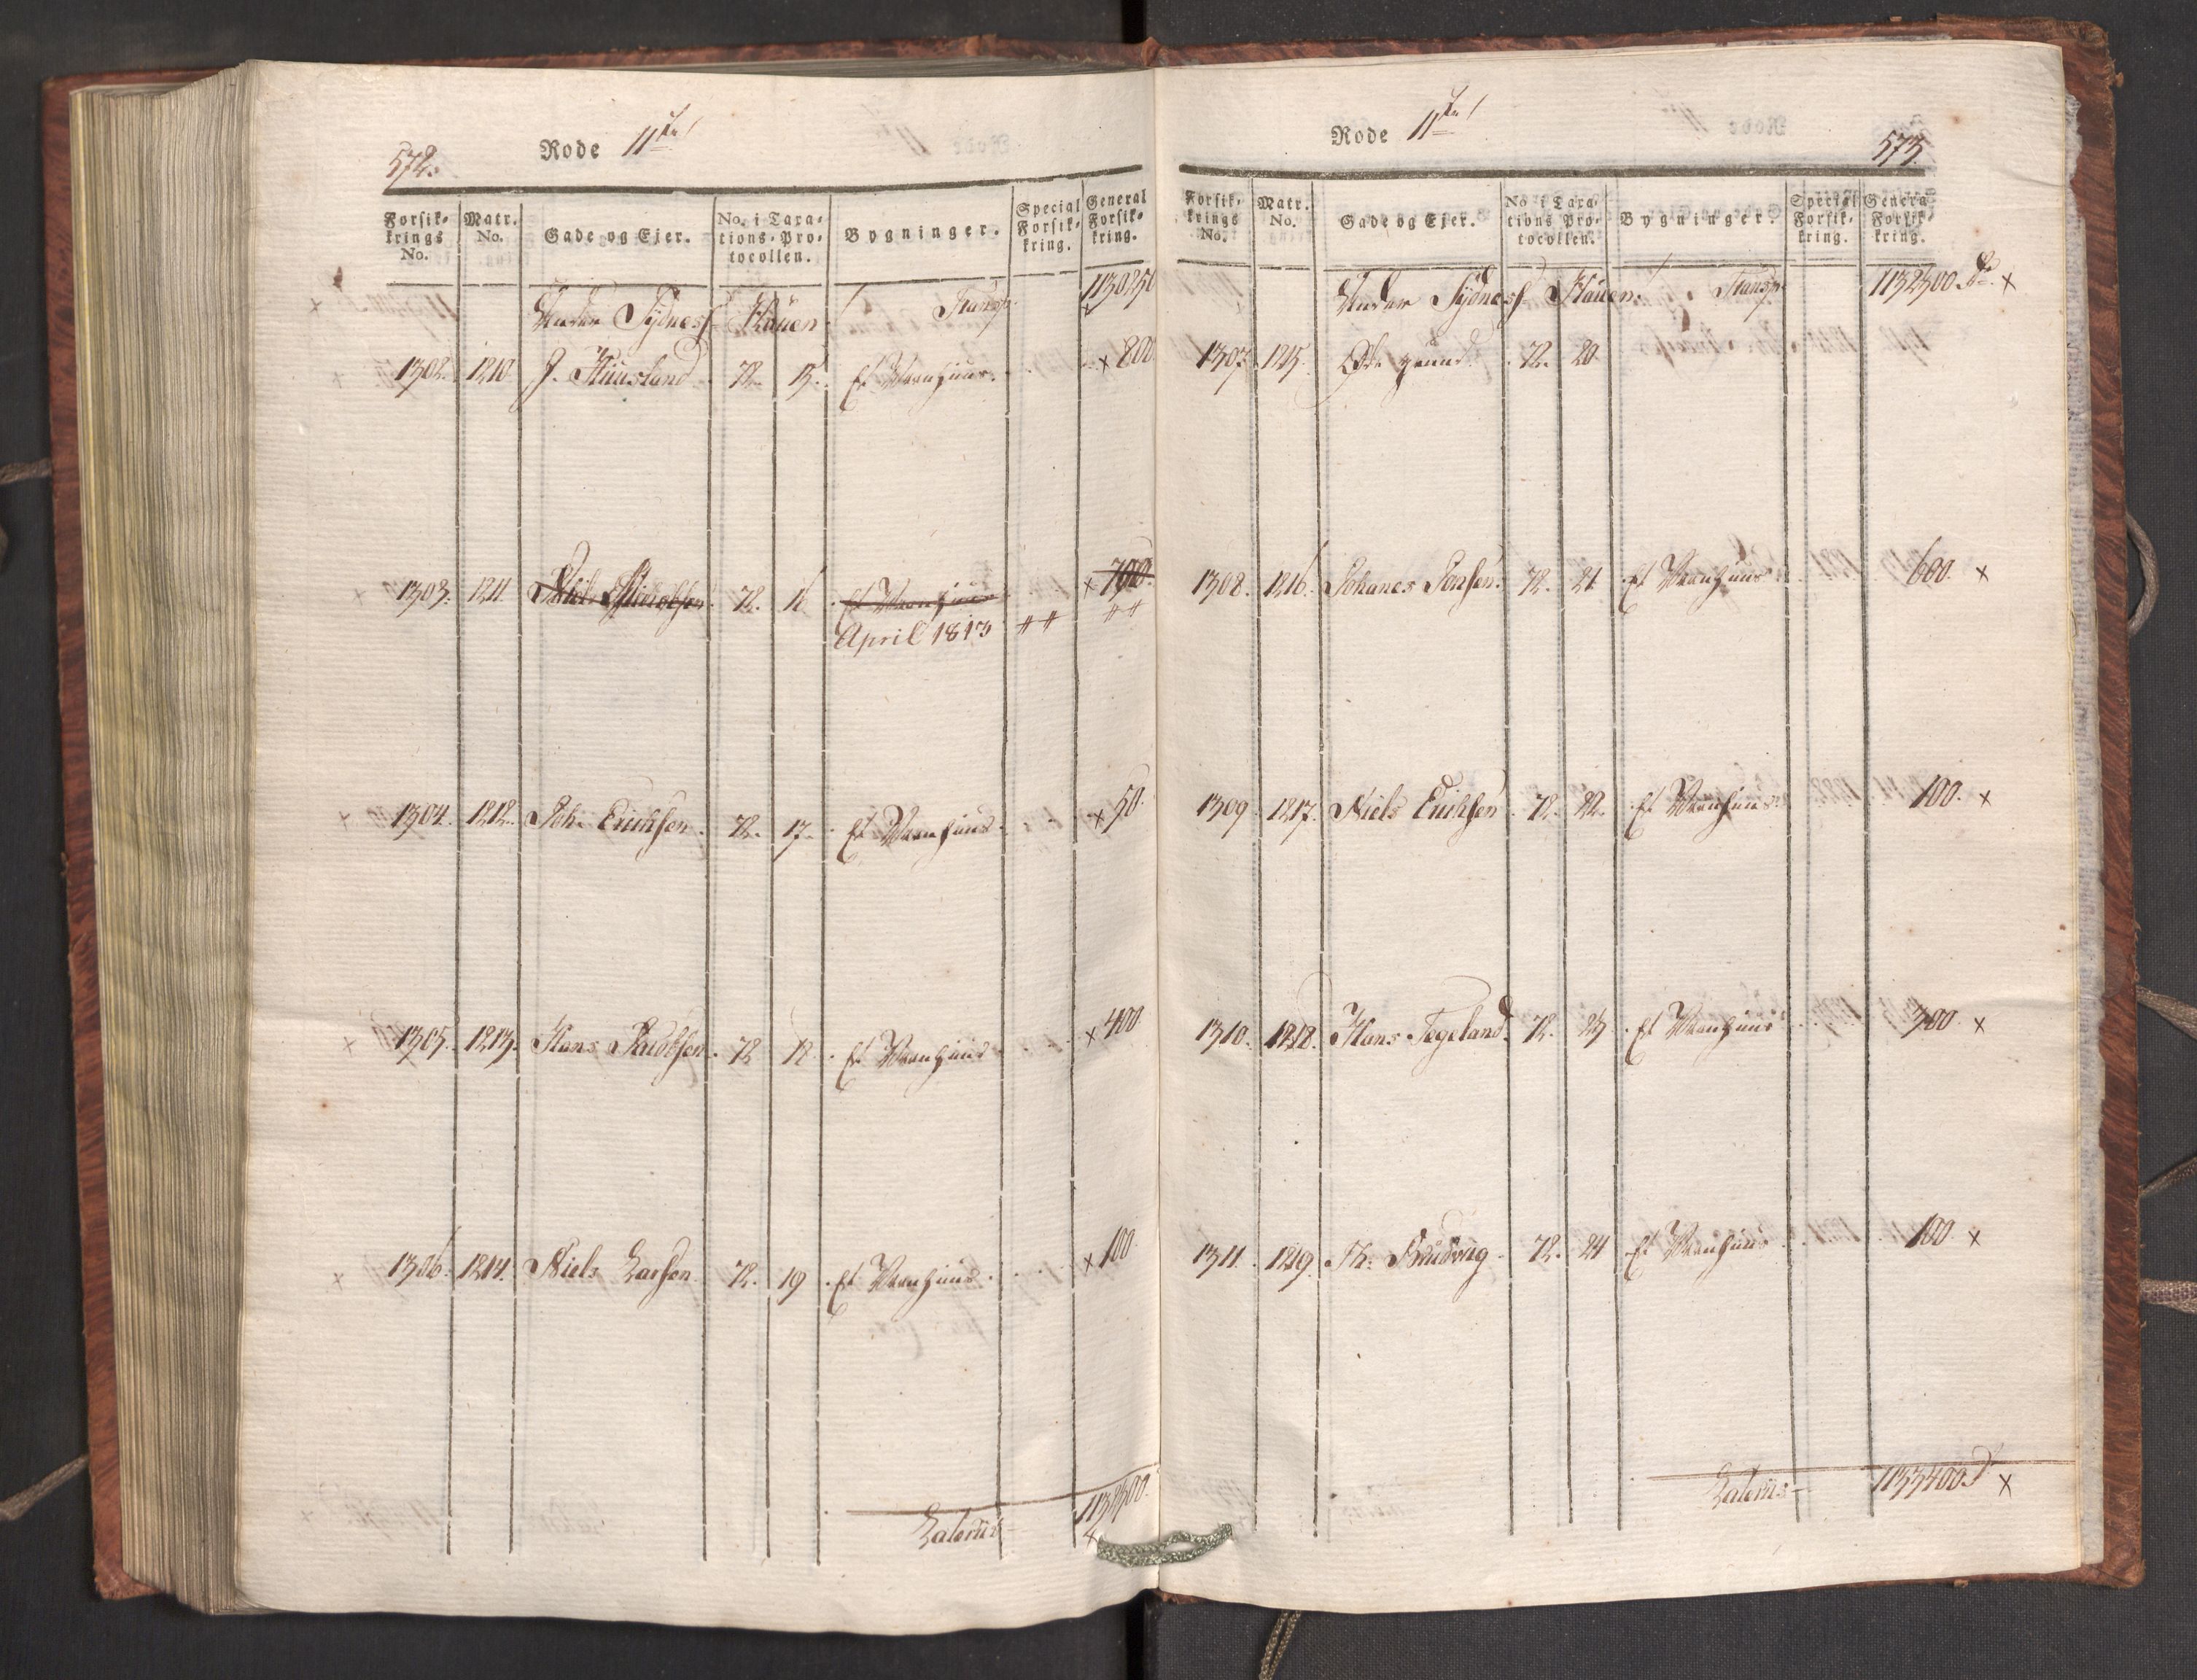 572.
Rode 11te
Forsik= krings No.
Matr. No.
Gade og Ejer.
No. i Taxa= tions=Pro= tocollen.
Bygninger.
Special Forsik= kring.
General Forsik= kring.
Under Sydness Hauen Transp. 1130250
1302. 1210 J. Huusland 72. 15. Et Vaanhuus. x 800
1303. 1211 72. 16 Et Vaanhuus x 700.
April 1813 ++ ++
1304. 1212. Joh: Erichsen. 72. 17. Et Vaanhuus. x 50.
1305. 1213. Hans Jacobsen. 72 18 Et Vaanhuus x 400.
1306. 1214. Niels Larsen 72. 19 Et Vaanhuus. x 100
Laterus 1132300.
573.
Rode 11te
Forsik= krings No.
Matr. No.
Gade og Ejer.
No i Taxa= tions Pro= tocollen.
Bygninger.
Special Forsik= kring.
General Forsik= kring.
Under Sydness Hauen. Transp. 1132300 x
1307 1215. Øde grund. 72. 20.
1308. 1216. Johanes Jonsen. 72. 21 Et Vaanhuus 600. x
1309 1217. Niels Erichsen 72. 22. Et Vaanhuus 100. x
1310. 1218. Hans Tegeland. 72. 23. Et Vaanhuus 300 x
1311. 1219. Th: Brudvig 72. 24 Et Vaanhuus 100 x
Laterus 1133400 x